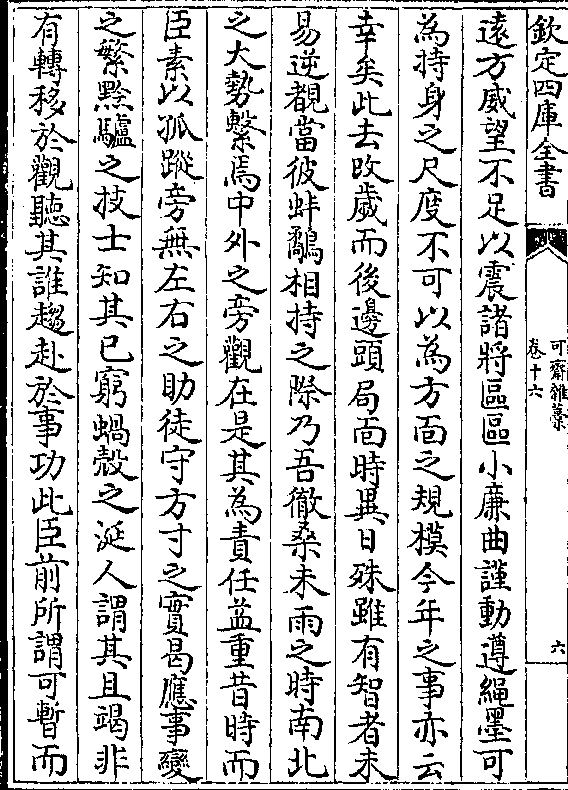 欽定四庫全書
可齋雜藁
卷十六
六
遠方威望不足以震諸將區區小廉曲謹動遵繩墨可
為持身之尺度不可以為方面之規模今年之事亦云
幸矣此去改歲而後邊頭局面時異日殊雖有智者未
易逆覩當彼蚌鷸相持之際乃吾徹桑未雨之時南北
之大勢繫焉中外之旁觀在是其為責任益重昔時而
臣素以孤蹤旁無左右之助徒守方寸之實曷應事變
之繁黔驢之技士知其已窮蝸殼之涎人謂其且竭非
有轉移於觀聽其誰趨赴於事功此臣前所謂可暫而